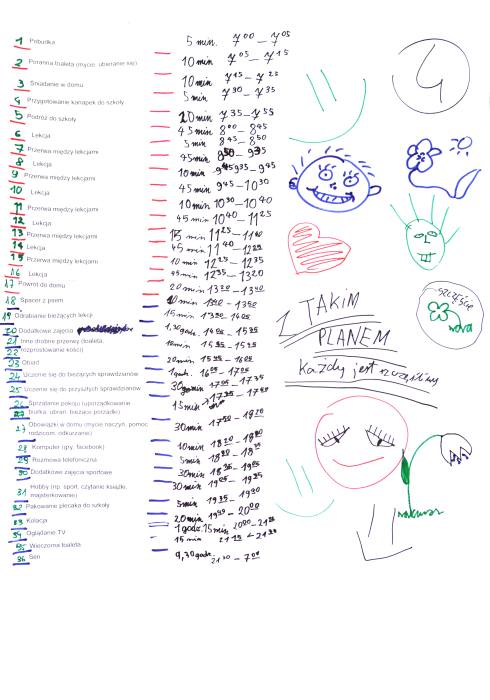 1 Pobudka 5 min. 7⁰⁰ – 7⁰⁵
2 Poranna toaleta (mycie, ubieranie się) 10 min 7⁰⁵ – 7¹⁵
3 Śniadanie w domu 10 min 7¹⁵ – 7²⁵
4 Przygotowanie kanapek do szkoły 5 min 7³⁰ – 7³⁵
5 Podróż do szkoły 20 min 7³⁵ – 7⁵⁵
6 Lekcja 45 min 8⁰⁰ – 8⁴⁵
7 Przerwa między lekcjami 5 min 8⁴⁵ – 8⁵⁰
8 Lekcja 45 min 8⁵⁰ – 9³⁵
9 Przerwa między lekcjami 10 min 9³⁵ – 9⁴⁵
10 Lekcja 45 min 9⁴⁵ – 10³⁰
11 Przerwa między lekcjami 10 min 10³⁰ – 10⁴⁰
12 Lekcja 45 min 10⁴⁰ – 11²⁵
13 Przerwa między lekcjami 15 min 11²⁵ – 11⁴⁰
14 Lekcja 45 min 11⁴⁰ – 12²⁵
15 Przerwa między lekcjami 10 min 12²⁵ – 12³⁵
16 Lekcja 45 min 12³⁵ – 13²⁰
17 Powrót do domu 20 min 13²⁰ – 13⁴⁰
18 Spacer z psem 10 min – 13⁵⁰
19 Odrabianie bieżących lekcji 15 min
20 Dodatkowe zajęcia 1,30 godz. 14⁰⁵ – 15³⁵
21 Inne drobne przerwy (toaleta,
22 rozprostowanie kości) 10 min 15³⁵ – 15⁴⁵
23 Obiad 20 min 15⁴⁵ – 16⁰⁵
24 Uczenie się do bieżących sprawdzianów 1 godz. 16⁰⁵ – 17⁰⁵
25 Uczenie się do przyszłych sprawdzianów 30 min 17⁰⁵ – 17³⁵
26 Sprzątanie pokoju (uporządkowanie
27 biurka, ubrań, bieżące porządki) 15 min 17³⁵ – 17⁵⁰
27 Obowiązki w domu (mycie naczyń, pomoc
rodzicom, odkurzanie) 30 min 17⁵⁰ – 18²⁰
28 Komputer (gry, facebook) 10 min 18²⁰ – 18³⁰
29 Rozmowa telefoniczna 5 min 18³⁰ – 18³⁵
30 Dodatkowe zajęcia sportowe 30 min 18³⁵ – 19⁰⁵
31 Hobby (np. sport, czytanie książki,
majsterkowanie) 30 min 19⁰⁵ – 19³⁵
32 Pakowanie plecaka do szkoły 5 min 19³⁵ – 19⁴⁰
33 Kolacja 20 min 19⁴⁰ – 20⁰⁰
34 Oglądanie TV 1 godz. 15 min 20⁰⁰ – 21¹⁵
35 Wieczorna toaleta 15 min 21¹⁵ – 21³⁰
36 Sen 9,30 godz. 21³⁰ – 7⁰⁰
4
SZCZĘŚCIE
Z TAKIM
PLANEM
Każdy jest szczęśliwy